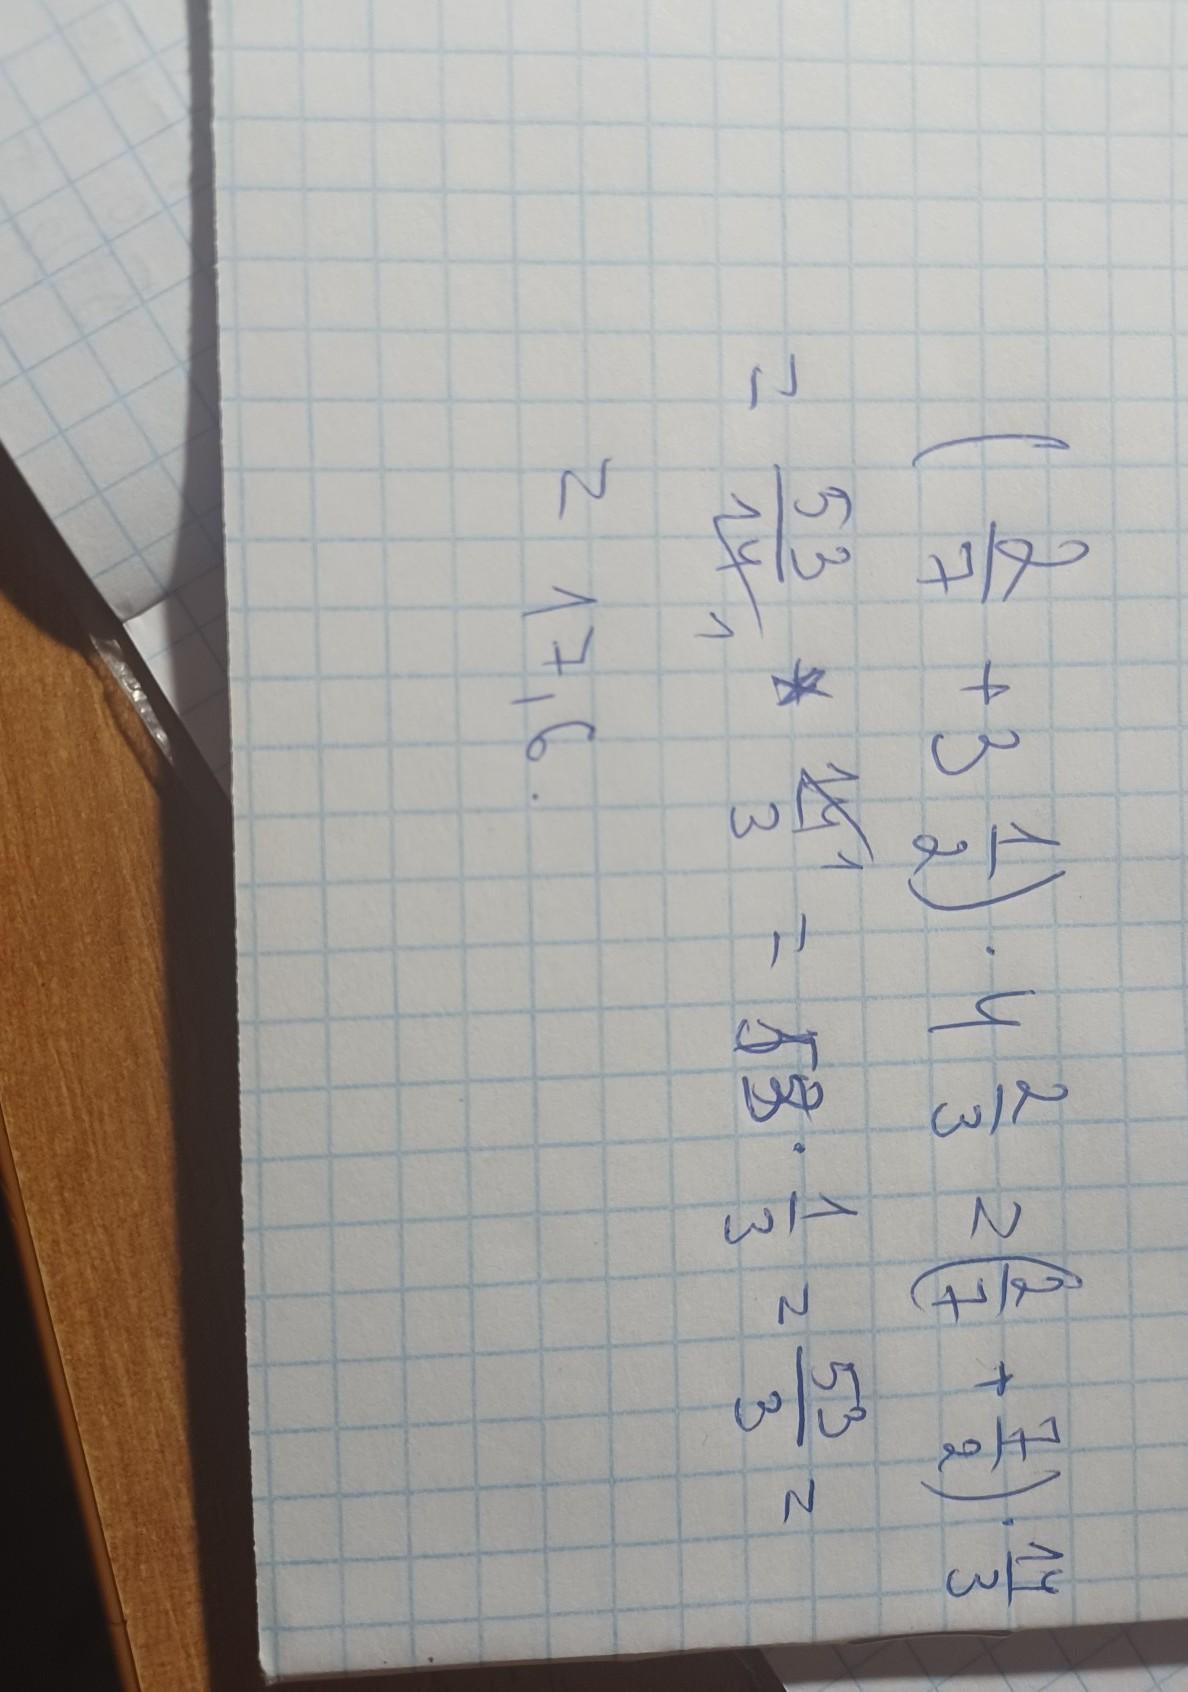 ( 2/7 + 3 1/2 ) · 4 2/3 = ( 2/7 + 7/2 ) · 14/3
= 53/14 1 * 14/3 1 = 53 · 1/3 = 53/3 =
= 17,6.